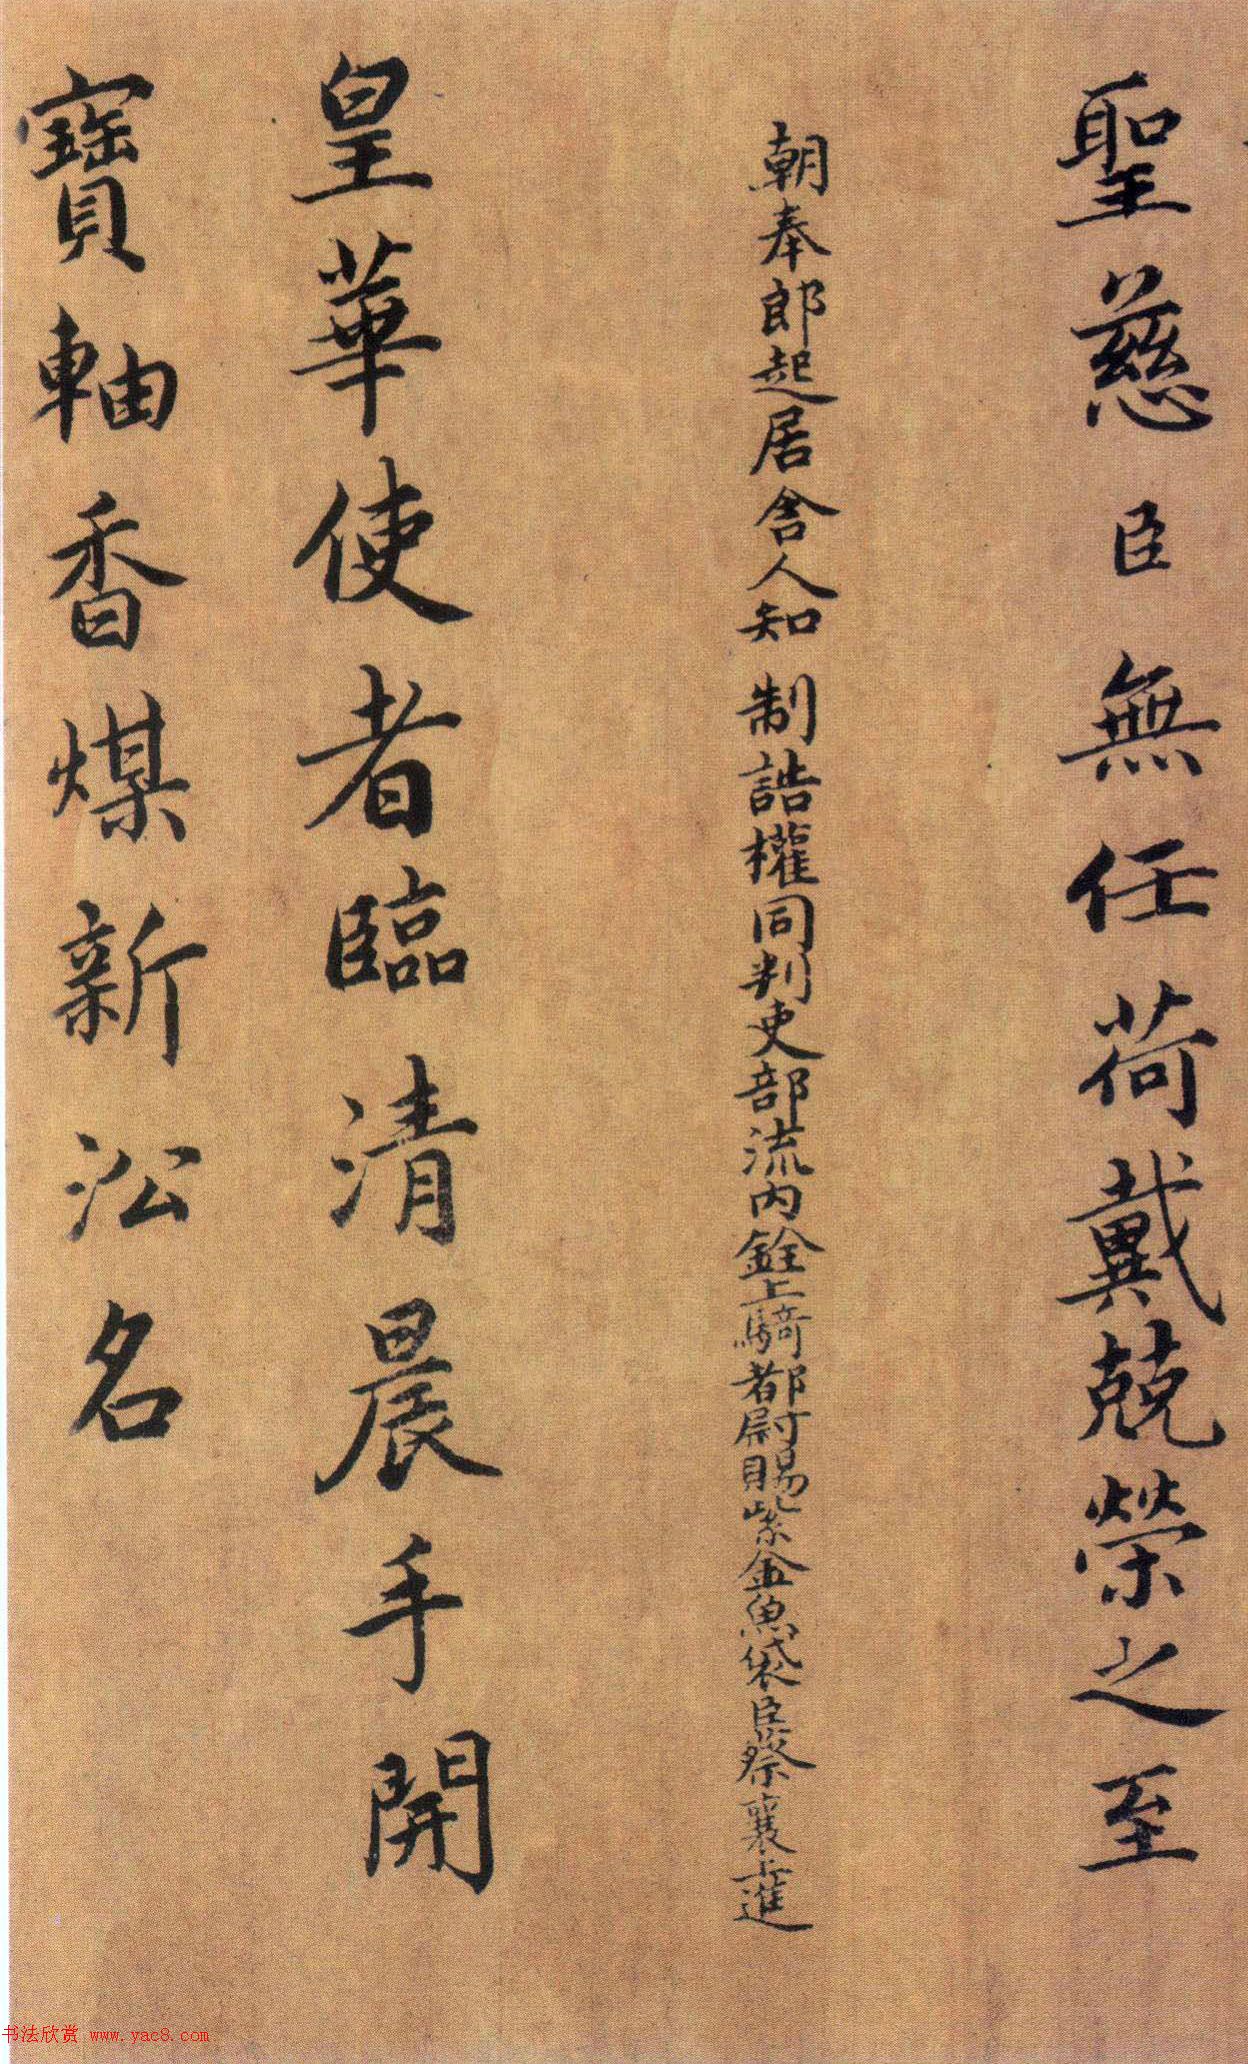 聖慈臣無任荷戴兢榮之至
朝奉郎起居舍人知制誥權同判吏部流內銓上騎都尉賜紫金魚袋臣蔡襄上進
皇華使者臨清晨手開
寶軸香煤新沿名
书法欣赏 www.yac8.com